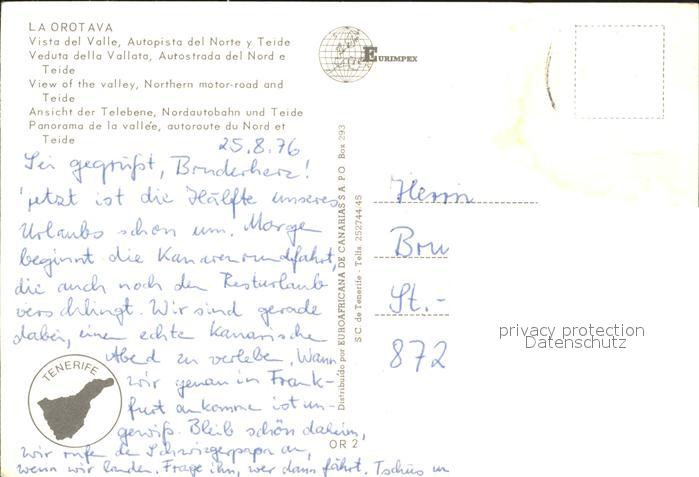 LA OROTAVA
Vista del Valle, Autopista del Norte y Teide
Veduta della Vallata, Autostrada del Nord e
Teide
View of the valley, Northern motor-road and
Teide
Ansicht der Telebene, Nordautobahn und Teide
Panorama de la vallée, autoroute du Nord et
Teide
25.8.76
Sei gegrüßt, Bruderherz!
jetzt ist die Hälfte unseres
Urlaubs schon um. Morge
beginnt die Kanarenrundfahrt,
die auch noch den Resturlaub
verschlingt. Wir sind gerade
dabei, einen echte Kanarische
Abend zu verleben. Wann
wir genau in Frank-
furt ankomme ist un-
gewiß. Bleib schön daheim,
wir rufe den Schwiegerpapa an,
wenn wir landen. Frage ihn, wer dann fährt. Tschüs
TENERIFE
OR 2
EURIMPEX
Distribuido por EUROAFRICANA DE CANARIAS S A PO Box 293
S.C. de Tenerife - Telfs. 252744-45
Herrn
Bru
St.-
872
privacy protection
Datenschutz